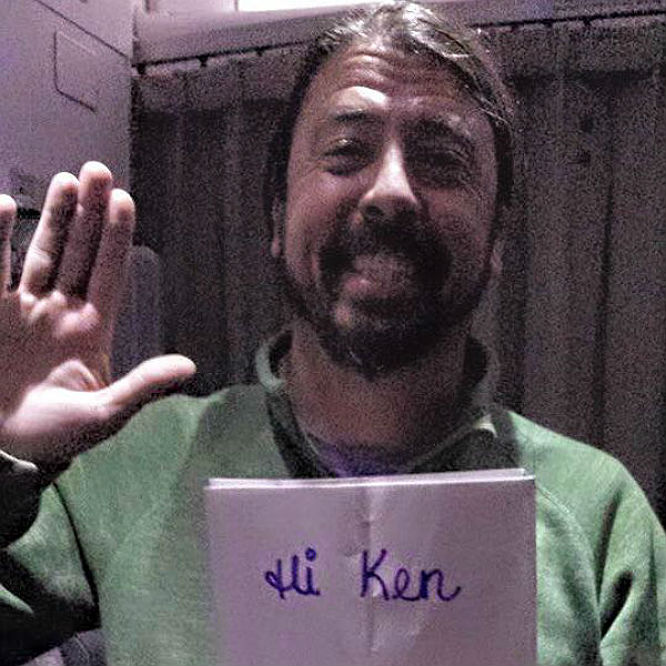 Hi Ken